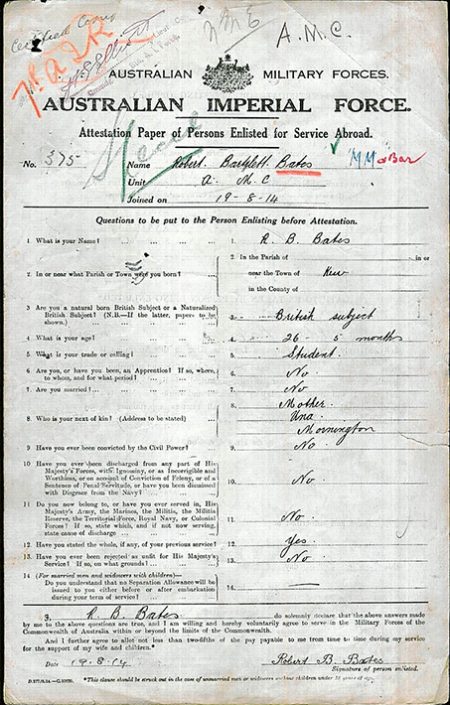 Certified Copy
A.M.C.
AUSTRALIAN MILITARY FORCES.
AUSTRALIAN IMPERIAL FORCE.
Attestation Paper of Persons Enlisted for Service Abroad.
No. 375 Name Robert Bartlett Bates MM & Bar
Unit A. M. C
Joined on 19-8-14
Questions to be put to the Person Enlisting before Attestation.
1. What is your Name? ... 1. R. B. Bates
2. In or near what Parish or Town were you born? ... 2. In the Parish of in or
near the Town of Kew
in the County of
3. Are you a natural born British Subject or a Naturalized
British Subject? (N.B.—If the latter, papers to be
shown.) 3. British subject
4. What is your age? 4. 26 5 months
5. What is your trade or calling? 5. Student.
6. Are you, or have you been, an Apprentice? If so, where,
to whom, and for what period? 6. No
7. Are you married? 7. No
8. Who is your next of kin? (Address to be stated) 8. Mother.
Una
Mornington
9. Have you ever been convicted by the Civil Power? 9. No.
10. Have you ever been discharged from any part of His
Majesty's Forces, with Ignominy, or as Incorrigible and
Worthless, or on account of Conviction of Felony, or of a
Sentence of Penal Servitude, or have you been dismissed
with Disgrace from the Navy? 10. No.
11. Do you now belong to, or have you ever served in, His
Majesty's Army, the Marines, the Militia, the Militia
Reserve, the Territorial Force, Royal Navy, or Colonial
Forces? If so, state which, and if not now serving,
state cause of discharge 11. No.
12. Have you stated the whole, if any, of your previous service? 12. Yes.
13. Have you ever been rejected as unfit for His Majesty's
Service? If so, on what grounds? 13. No.
14. (For married men and widowers with children)—
Do you understand that no Separation Allowance will be
issued to you either before or after embarkation
during your term of service? 14. —
I, R. B. Bates do solemnly declare that the above answers made
by me to the above questions are true, and I am willing and hereby voluntarily agree to serve in the Military Forces of the
Commonwealth of Australia within or beyond the limits of the Commonwealth.
And I further agree to allot not less than two-fifths of the pay payable to me from time to time during my service
for the support of my wife and children.*
Date 19-8-14 Robert B. Bates
Signature of person enlisted.
*This clause should be struck out in the case of unmarried men or widowers without children under 18 years of age.